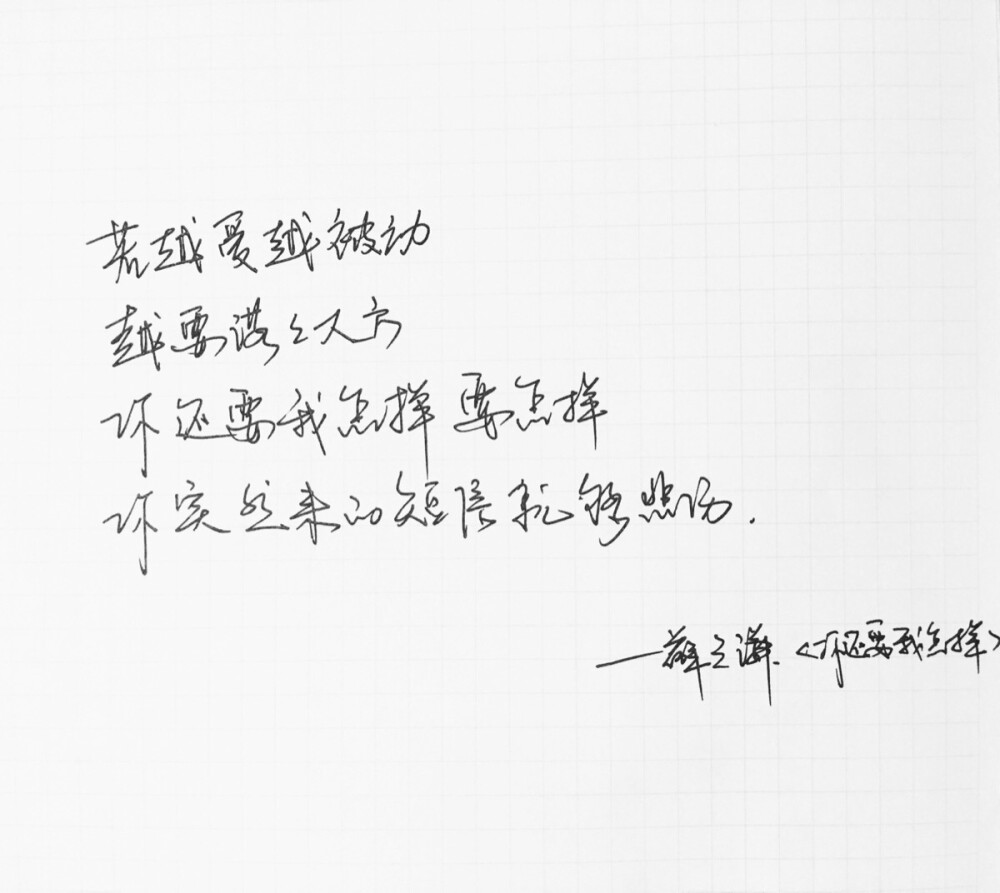 若越爱越被动
越要落落大方
你还要我怎样 要怎样
你突然来的短信就够悲伤.
——薛之谦.《你还要我怎样》